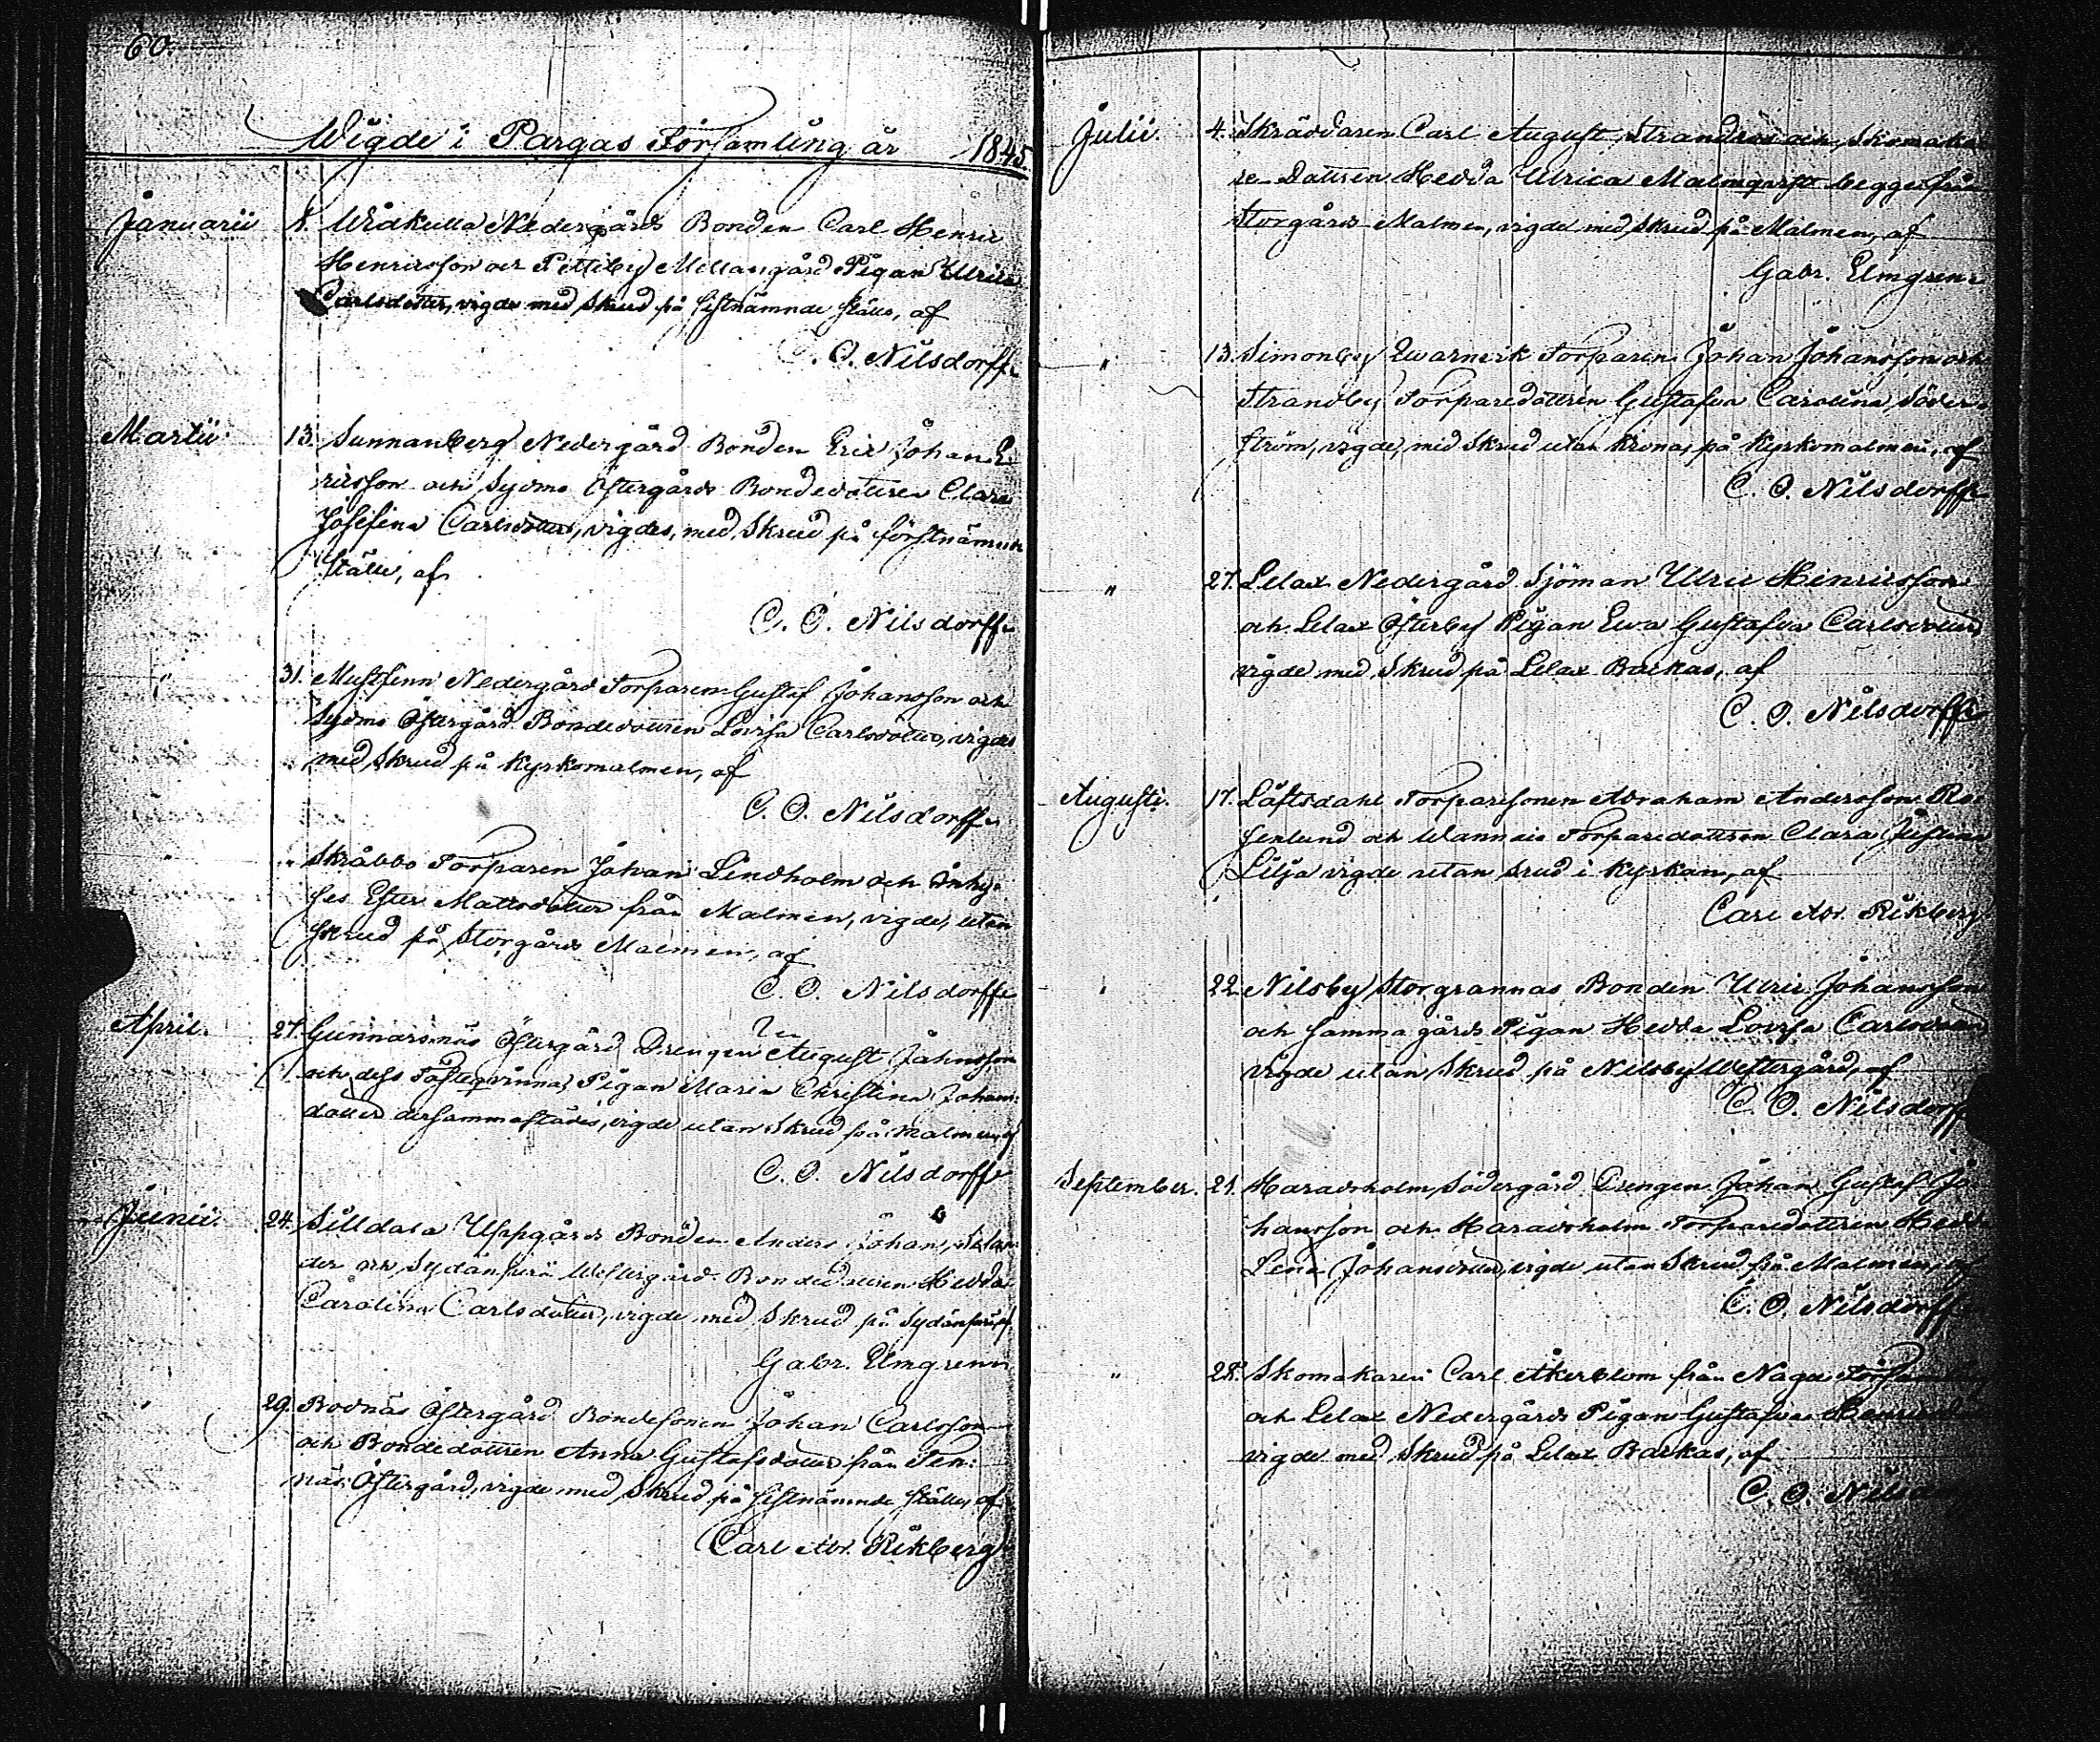 60.
Wigde i Pargas Församling år 1845
Januarii 8. Wråkulla Nedergårds Bonden Carl Henric
Henricsson och Pettiby Mellangård Pigan Ulrica
Carlsdotter, vigde med Skrud på sistnämnde ställe, af
C. O. Nilsdorff.
Martii 13. Sunnanberg Nedergård Bonden Eric Johan E-
ricsson och Sydmo Östergårds Bondedottren Clara
Josefina Carlsdotter, vigdes, med Skrud på förstnämnde
ställe, af
C. O. Nilsdorff.
" 31. Mustfinn Nedergårds Torparen Gustaf Johansson och
Sydmo Östergård Bondedottren Lovisa Carlsdotter, vigdes
med Skrud på Kyrkomalmen, af
C. O. Nilsdorff.
" " Skråbbo Torparen Johan Lindholm och Inhy-
ses Ester Mattsdotter från Malmen, vigde, utan
skrud på Storgårds Malmen, af
C. O. Nilsdorff.
April. 27. Gunnarsnäs Östergård Drengen August Johnsson
och dess Fästeqvinna, Pigan Maria Christina Johans-
dotter dersammastädes, vigde utan Skrud på Malmen, af
C. O. Nilsdorff.
Junii. 24. Silldala Uppgårds Bonden Anders Johan Selan-
der och Sydänperä Westergård Bondedottren Hedda
Carolina Carlsdotter, vigde med Skrud på Sydänperä, af
Gabr. Elmgren.
" 29. Bodnäs Östergård Bondesonen Johan Carlsson
och Bondedottren Anna Gustafsdotter från Ten-
näs Östergård, vigde med Skrud på sistnämnde ställe, af
Carl Abr. Rikberg.
Julii. 4. Skräddaren Carl August Strandroos och Skomaka-
re Dottren Hedda Ulrica Malmqvist begge från
Storgårds Malmen, vigde med Skrud på Malmen, af
Gabr. Elmgren.
" 13. Simonby Qvarnvik Torparen Johan Johansson och
Strandby Torparedottren Gustafva Carolina Söder-
ström, vigde, med Skrud utan Krona, på Kyrkomalmen, af
C. O. Nilsdorff.
" 27. Lelax Nedergård Sjöman Ulric Henricsson
och Lelax Österby Pigan Eva Gustafva Carlsdotter
vigde med Skrud på Lelax Backas, af
C. O. Nilsdorff.
Augusti. 17. Löftsdahl Torparesonen Abraham Andersson Ro-
senlund och Wannais Torparedottren Clara Justina
Lilja vigde utan srud i Kyrkan, af
Carl Abr. Rikberg.
" 22. Nilsby Storgrannas Bonden Ulric Johansson
och samma gårds Pigan Hedda Lovisa Carlsdotter
vigde utan Skrud på Nilsby Westergård, af
C. O. Nilsdorff
September. 21. Haradsholm Södergård Drengen Johan Gustaf Jo-
hansson och Haradsholm Torparedottren Hedda
Lena Johansdotter, vigde utan Skrud på Malmen, af
C. O. Nilsdorff
" 28. Skomakaren Carl Åkerblom från Nagu Församling
och Lelax Nedergårds Pigan Gustafva Henricsd
vigde med Skrud på Lelax Backas, af
C. O. Nilsdorff